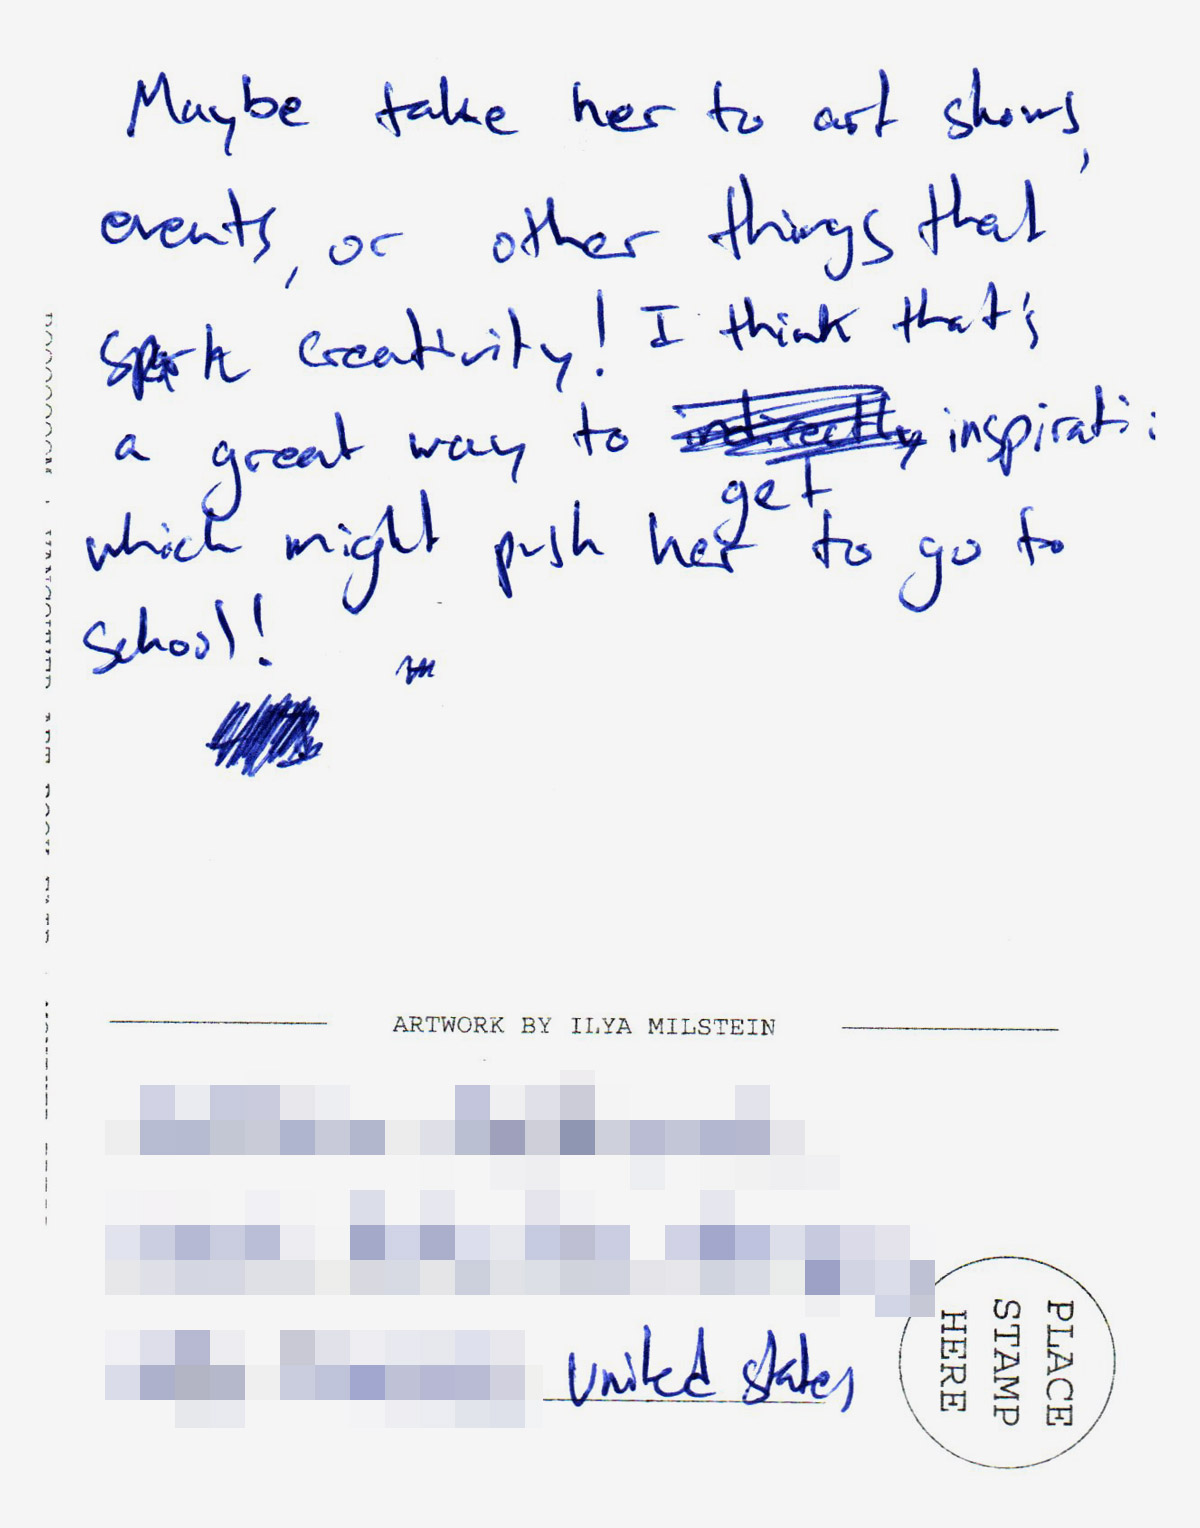 Maybe take her to art shows,
events, or other things that
spark creativity! I think that's
a great way to indirectly inspirati
get
which might push her to go to
school!
ARTWORK BY ILYA MILSTEIN
United States
PLACE
STAMP
HERE